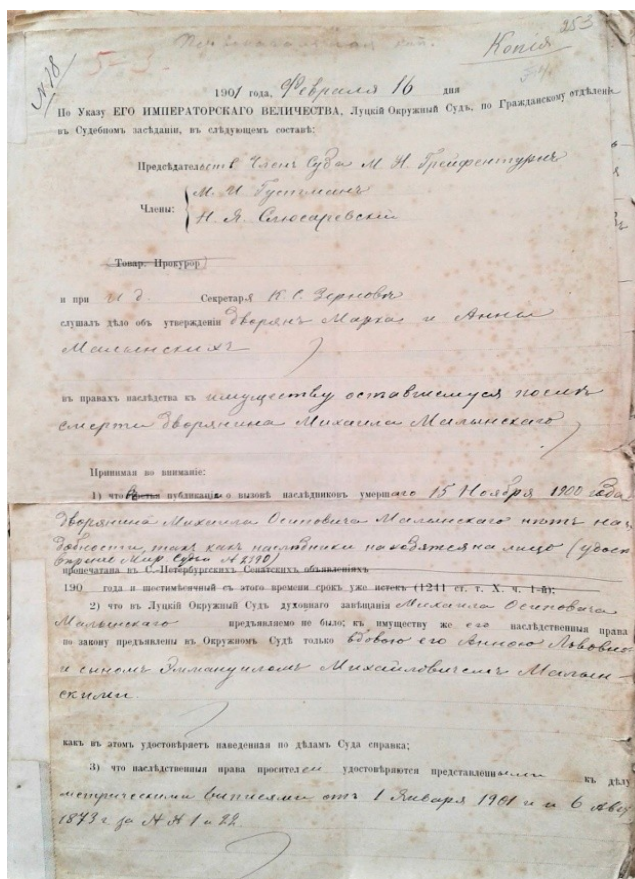 253
Копія
N 18
5-3.
1901 года, Февраля 16 дня
По Указу ЕГО ИМПЕРАТОРСКАГО ВЕЛИЧЕСТВА, Луцкій Окружный Судъ, по Гражданскому отдѣленію
въ Судебномъ засѣданіи, въ слѣдующемъ составѣ:
Предсѣдательств Членъ Суда М. Н. Грейфентурнъ
М. И. Густманъ
Члены:
Н. Я. Слюсаревскій
Товар. Прокурор
и при И д. Секретаря К. С. Зерновъ
слушалъ дѣло объ утвержденіи дворянъ Марка и Анны
Малынскихъ
въ правахъ наслѣдства къ имуществу оставшемуся послѣ
смерти дворянина Михаила Малынскаго
Принимая во вниманіе:
1) что публикаціи о вызовѣ наслѣдниковъ умершаго 15 Ноября 1900 года
дворянина Михаила Осиповича Малынскаго нѣтъ на
добности, такъ какъ наслѣдники находятся на лицо (удост
Мир. Суда N 2390)
пропечатана въ С.-Петербургскихъ Сенатскихъ объявленіяхъ
190 года и шестимѣсячный съ этого времени срокъ уже истекъ (1241 ст. т. X. ч. 1-й);
2) что въ Луцкій Окружный Судъ духовнаго завѣщанія Михаила Осиповича
Малынскаго предъявляемо не было; къ имуществу же его наслѣдственныя права
по закону предъявлены въ Окружномъ Судѣ только вдовою его Анною Львовной
и сыномъ Эммануиломъ Михайловичемъ Малын-
скими.
какъ въ этомъ удостовѣряетъ наведенная по дѣламъ Суда справка;
3) что наслѣдственныя права просителей удостовѣряются представленными къ дѣлу
метрическими выписями отъ 1 Января 1901 г и 6 Авг
1873 г за NN 1 и 22.